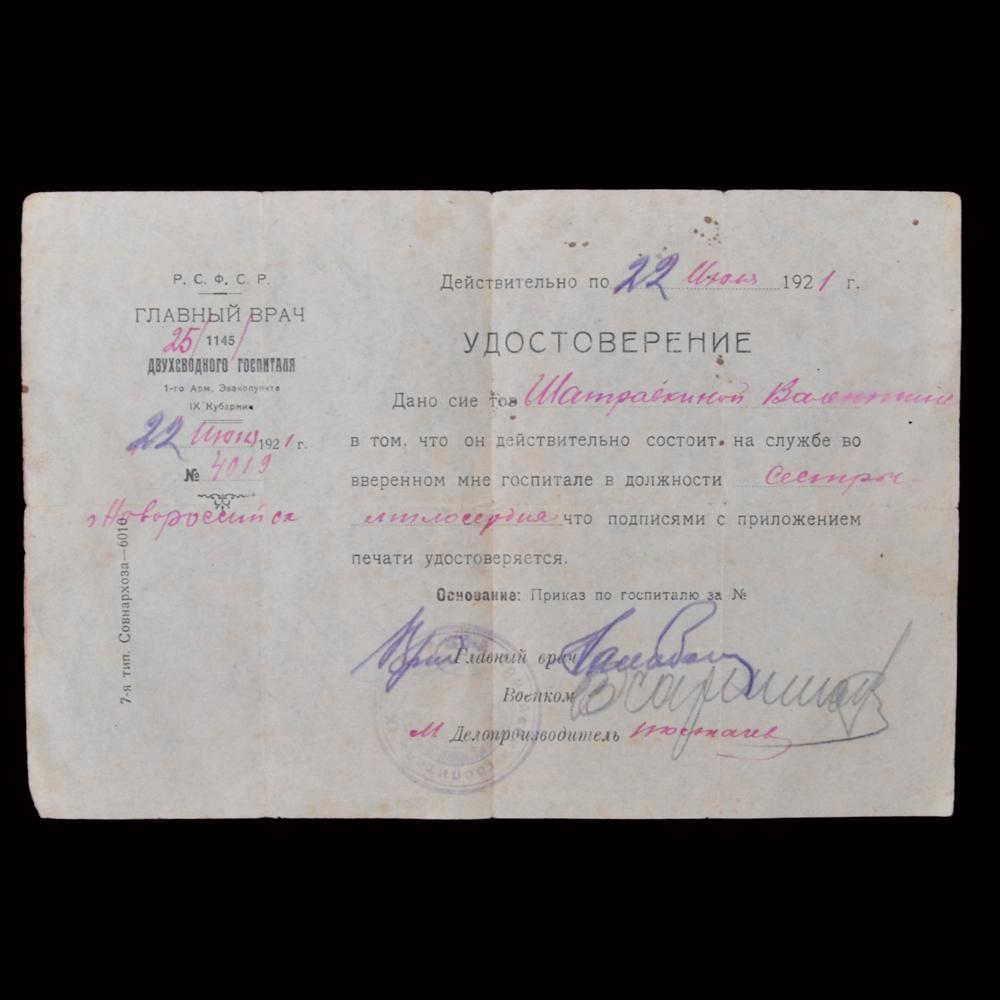 Р. С. Ф. С. Р.
ГЛАВНЫЙ ВРАЧ
25/1145/
ДВУХСВОДНОГО ГОСПИТАЛЯ
1-го Арм. Эвакопункта
IX Кубармии
22 Июня 1921 г.
№ 4019
г Новороссийск
7-я тип. Совнархоза—6010
Действительно по 22 Июля 1921 г.
УДОСТОВЕРЕНИЕ
Дано сие тов Шатравкиной Валентине
в том, что он действительно состоит на службе во
вверенном мне госпитале в должности Сестры-
милосердия что подписями с приложением
печати удостоверяется.
Основание: Приказ по госпиталю за №
Главный врач
Военком
Делопроизводитель